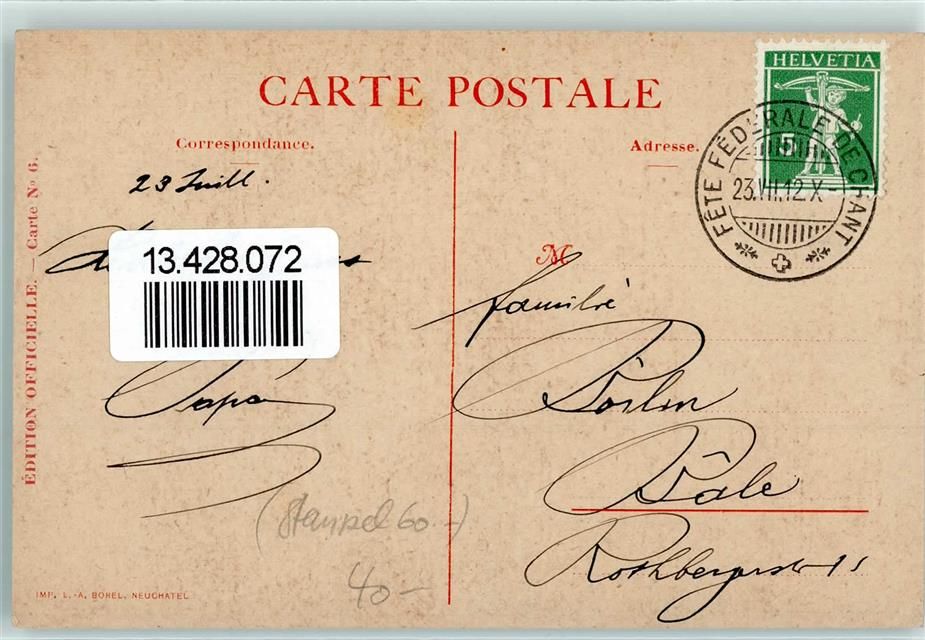 CARTE POSTALE
HELVETIA
5
FÊTE FÉDÉRALE DE CHANT
23.VII.12.X-
Correspondance.
Adresse.
23 Juill.
13.428.072
Papa
M
Familie
Börlin
Bâle
Rothbergerstr
(Stempel 60.-)
40.-
ÉDITION OFFICIELLE. — Carte No 6.
IMP. L.-A. BOREL, NEUCHATEL